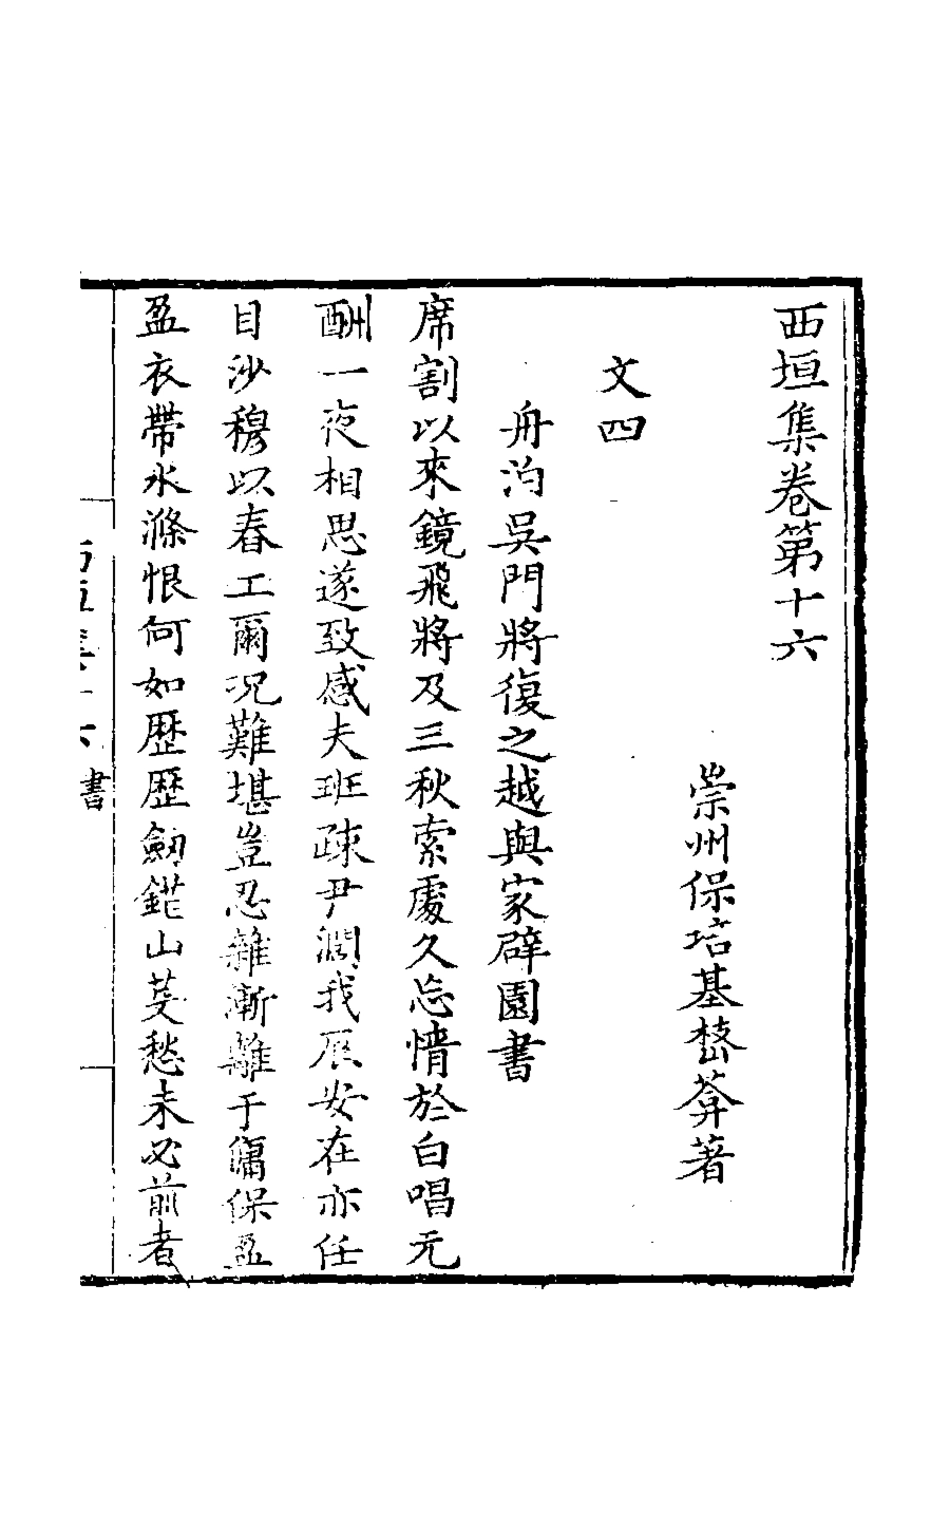 西垣集卷第十六
崇州保培基㙜葊著
文四
舟泊吳門將復之越與家辟園書
席割以來鏡飛將及三秋索處久忘情於白唱元
酬一夜相思遂致感夫班疎尹濶我辰安在亦任
目沙穆以舂工爾況難堪豈忍雜漸離于傭保盈
盈衣帶水滌恨何如歷歷劒鋩山芟愁未必前者
書